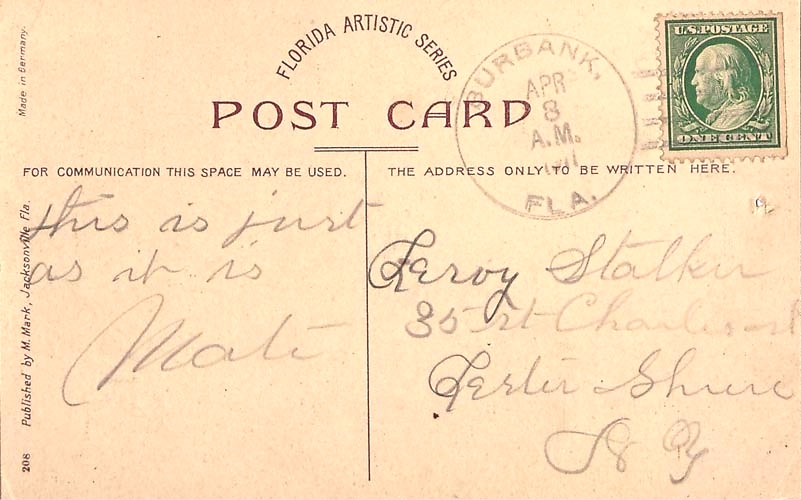 FLORIDA ARTISTIC SERIES
POST CARD
BURBANK,
APR
8
A.M.
FLA.
U.S. POSTAGE
ONE CENT
FOR COMMUNICATION THIS SPACE MAY BE USED.
THE ADDRESS ONLY TO BE WRITTEN HERE.
this is just
as it is
Mate
Leroy Stalker
35 St Charles st
N Y
Made in Germany.
208 Published by M. Mark, Jacksonville Fla.